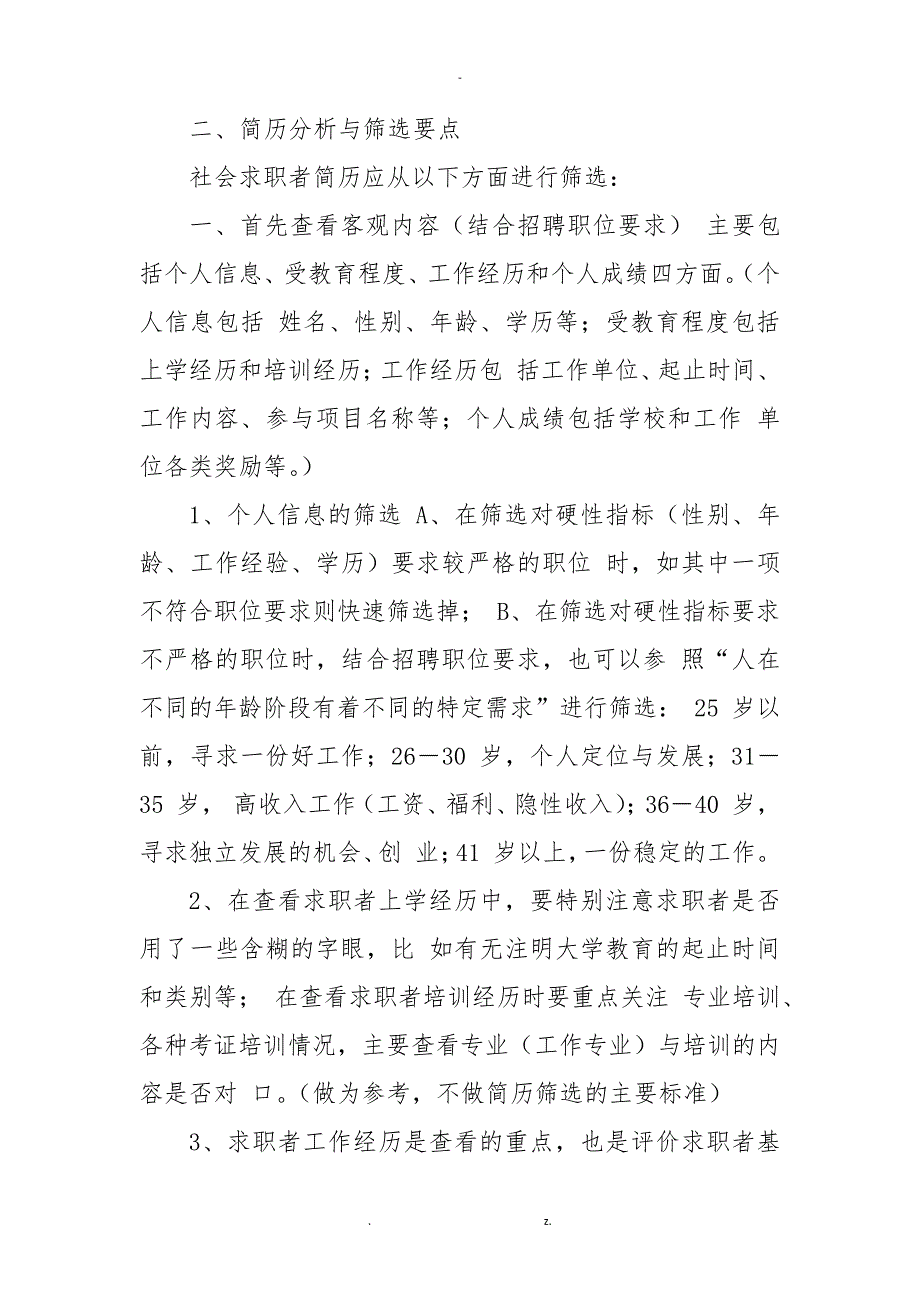 -
二、简历分析与筛选要点
社会求职者简历应从以下方面进行筛选：
一、首先查看客观内容（结合招聘职位要求） 主要包
括个人信息、受教育程度、工作经历和个人成绩四方面。（个
人信息包括 姓名、性别、年龄、学历等；受教育程度包括
上学经历和培训经历；工作经历包 括工作单位、起止时间、
工作内容、参与项目名称等；个人成绩包括学校和工作 单
位各类奖励等。）
1、个人信息的筛选 A、在筛选对硬性指标（性别、年
龄、工作经验、学历）要求较严格的职位 时，如其中一项
不符合职位要求则快速筛选掉； B、在筛选对硬性指标要求
不严格的职位时，结合招聘职位要求，也可以参 照“人在
不同的年龄阶段有着不同的特定需求”进行筛选： 25 岁以
前，寻求一份好工作；26－30 岁，个人定位与发展；31－
35 岁， 高收入工作（工资、福利、隐性收入）；36－40 岁，
寻求独立发展的机会、创 业；41 岁以上，一份稳定的工作。
2、在查看求职者上学经历中，要特别注意求职者是否
用了一些含糊的字眼，比 如有无注明大学教育的起止时间
和类别等； 在查看求职者培训经历时要重点关注 专业培训、
各种考证培训情况，主要查看专业（工作专业）与培训的内
容是否对 口。（做为参考，不做简历筛选的主要标准）
3、求职者工作经历是查看的重点，也是评价求职者基
. z.